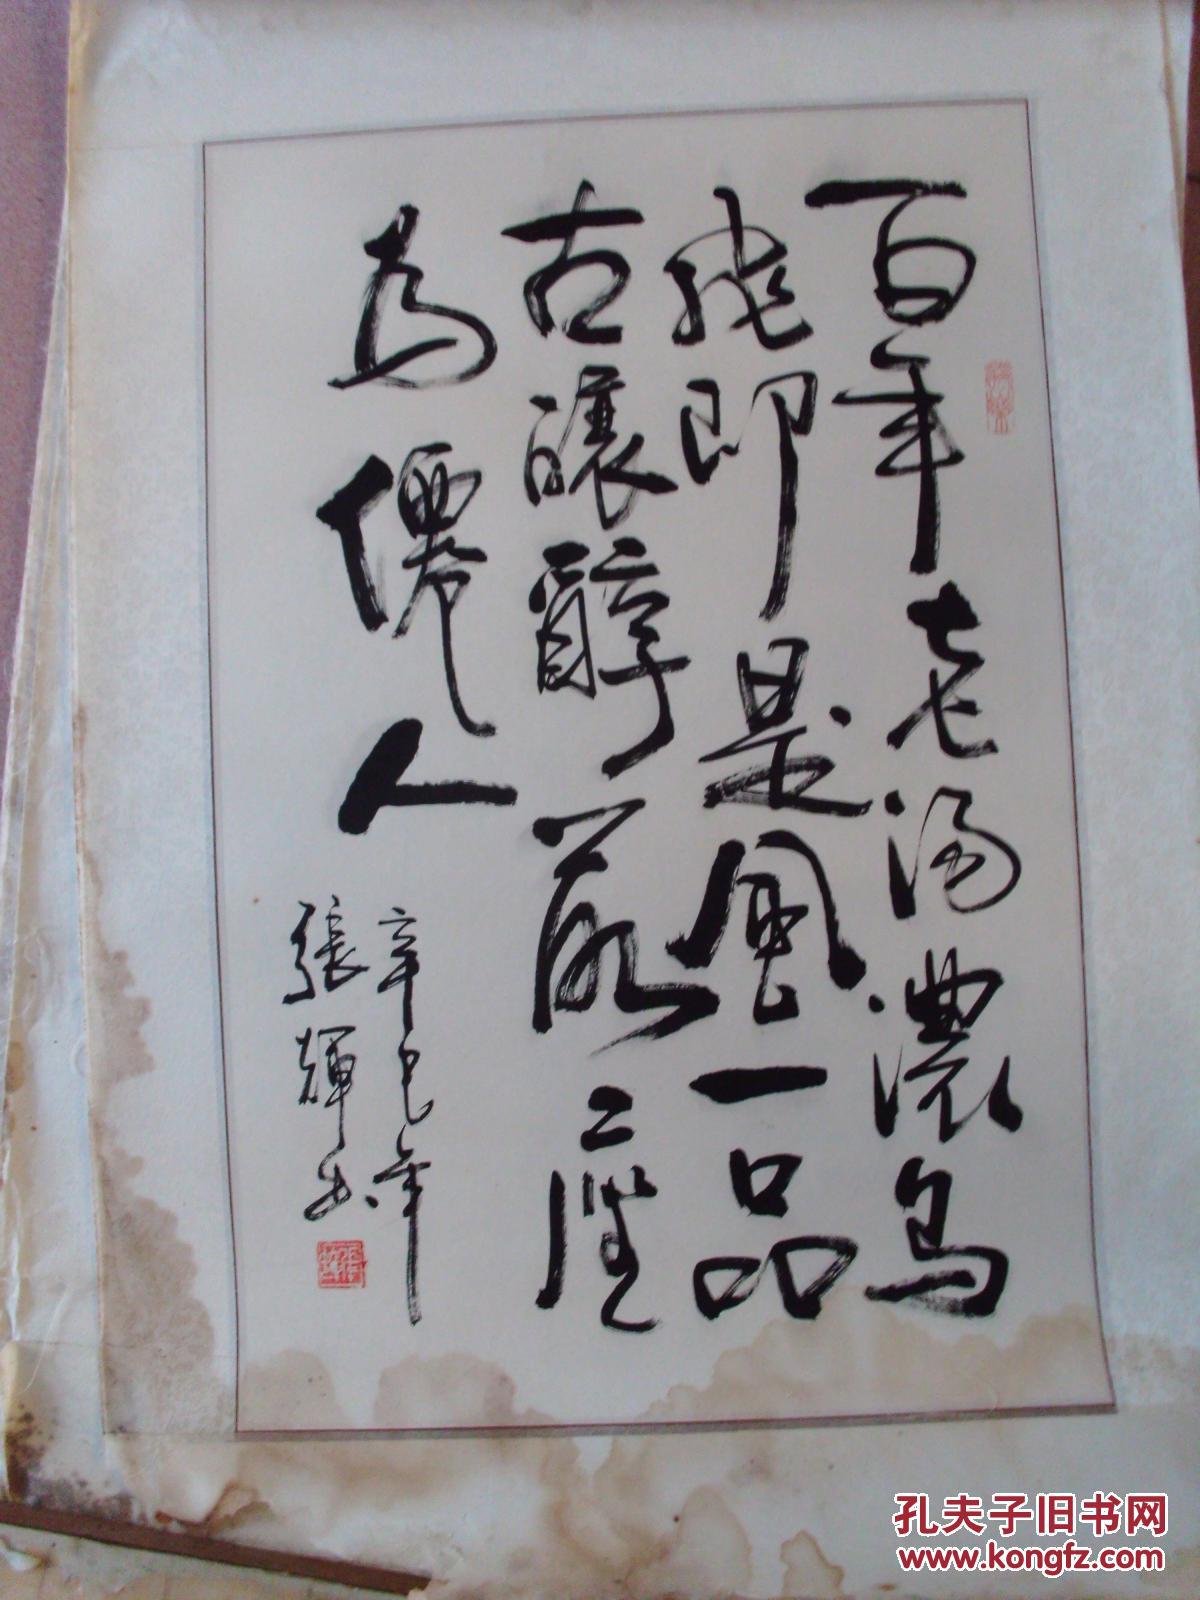 百年老湯濃烏
即是鳳一品
古釀醇落座
為僊人
辛巳年
張輝书
孔夫子旧书网
www.kongfz.com